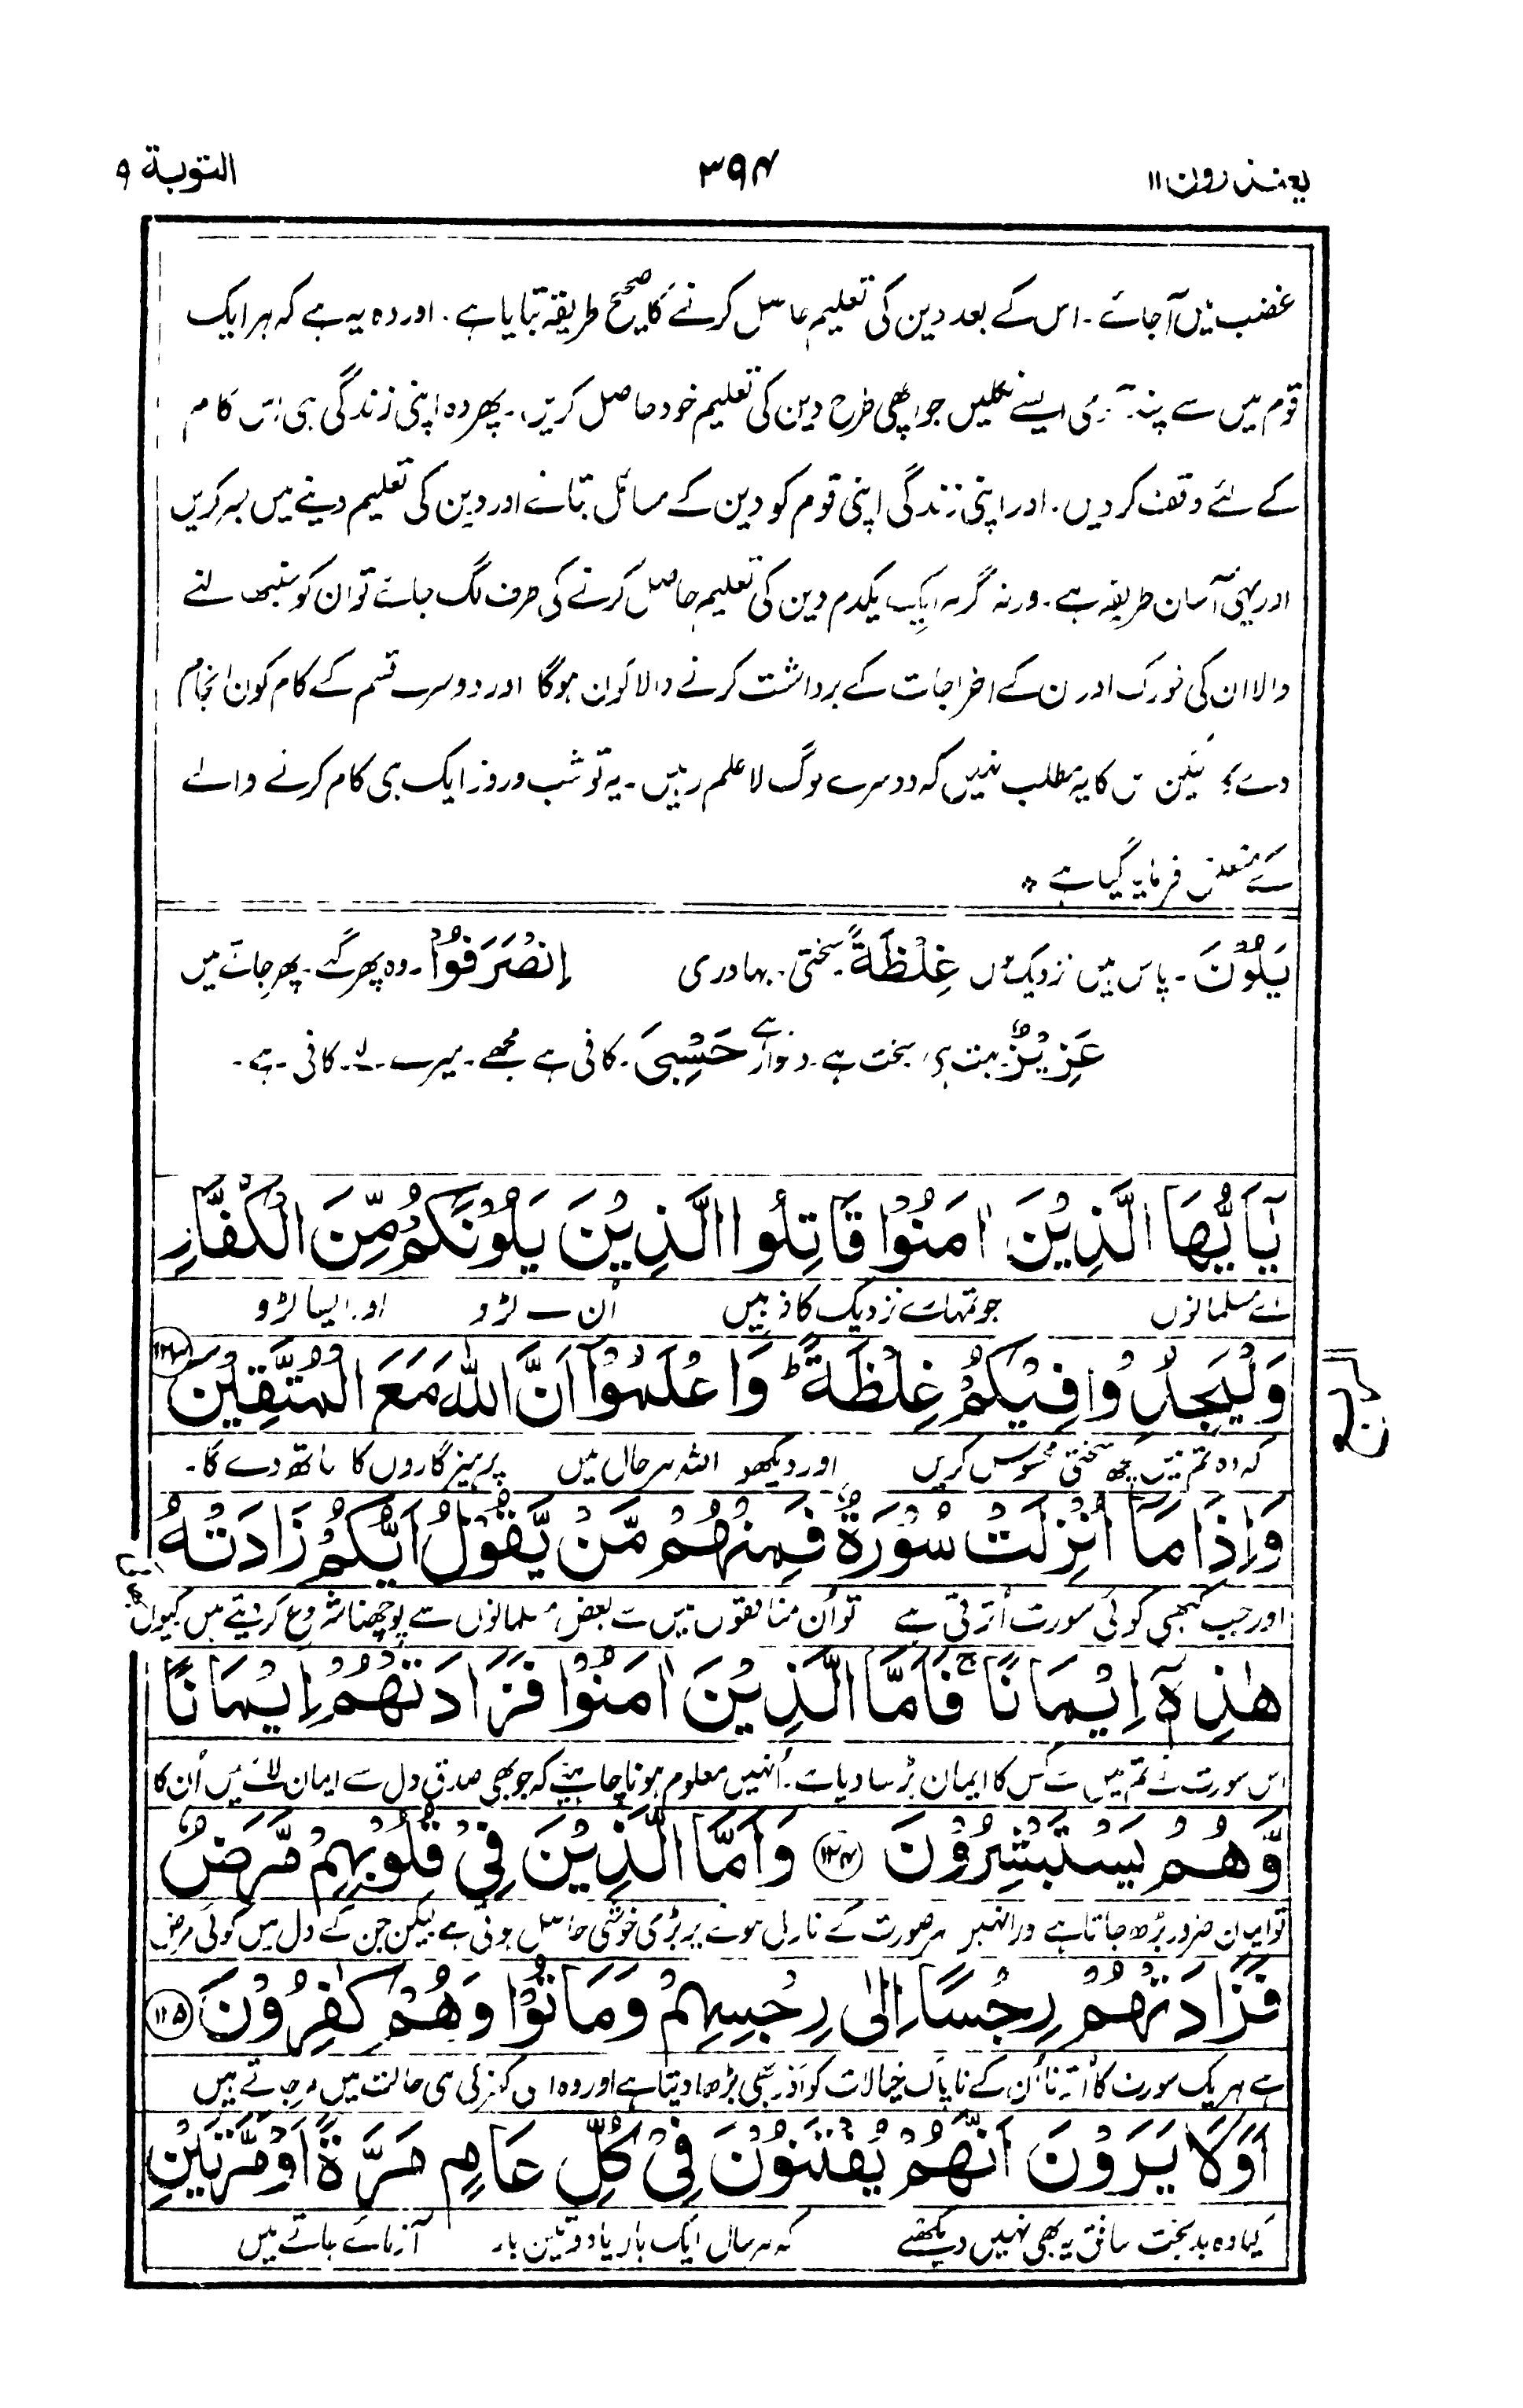 یعتذرون ۱۱
۳۹۴
التوبة ۹
غضب میں آجائے ۔ اس کے بعد دین کی تعلیم حاصل کرنے کا صحیح طریقہ بتایا ہے ۔ اور وہ یہ ہے کہ ہر ایک
قوم میں سے چند آدمی ایسے نکلیں جو اچھی طرح دین کی تعلیم خود حاصل کریں ۔ پھر وہ اپنی زندگی ہی اس کام
کے لئے وقف کر دیں ۔ اور اپنی زندگی اپنی قوم کو دین کے مسائل بتانے اور دین کی تعلیم دینے میں بسر کریں
اور یہی آسان طریقہ ہے ۔ ورنہ گر ہر ایک یکدم دین کی تعلیم حاصل کرنے کی طرف لگ جائے تو ان کو سنبھالنے
والا ان کی خورک اور ن کے اخراجات کے برداشت کرنے والا کون ہوگا اور دوسرے قسم کے کام کون انجام
دے گا لیکن س کا یہ مطلب نہیں کہ دوسرے لوگ لا علم رہیں ۔ یہ تو شب و روز ایک ہی کام کرنے والے
کے متعلق فرمایا گیا ہے ٭
يَلُوْنَ ۔ پاس ہیں نزدیک ہوں غِلْظَةً ۔ سختی ۔ بہادری اِنْصَرَفُوْا ۔ وہ پھر گئے ۔ پھر جاتے ہیں
عَزِيْزٌ ۔ سخت ہے ۔ دشوار ہے حَسْبِيَ ۔ کافی ہے مجھے ۔ میرے لئے کافی ہے ۔
يٰٓاَيُّهَا الَّذِيْنَ اٰمَنُوْا قَاتِلُوا الَّذِيْنَ يَلُوْنَكُمْ مِّنَ الْكُفَّارِ
اے مسلمانوں جو تمہارے نزدیک کافر ہیں اُن سے لڑو اور ایسا لڑو
وَلْيَجِدُوْا فِيْكُمْ غِلْظَةً ؕ وَاعْلَمُوْٓا اَنَّ اللّٰهَ مَعَ الْمُتَّقِيْنَ ۱۲۳
کہ وہ تم میں کچھ سختی محسوس کریں اور دیکھو اللہ ہر حال میں پرہیزگاروں کا ساتھ دے گا ۔
وَاِذَا مَآ اُنْزِلَتْ سُوْرَةٌ فَمِنْهُمْ مَّنْ يَّقُوْلُ اَيُّكُمْ زَادَتْهُ
اور جب کبھی کوئی سورت اُترتی ہے تو اُن منافقوں میں سے بعض مسلمانوں سے پوچھنا شروع کر دیتے ہیں کیوں
هٰذِهٖٓ اِيْمَانًا ۚ فَاَمَّا الَّذِيْنَ اٰمَنُوْا فَزَادَتْهُمْ اِيْمَانًا
اس سورت نے تم میں سے کس کا ایمان بڑھا دیا ہے ۔ اُنہیں معلوم ہونا چاہیئے کہ جو بھی صدق دل سے ایمان لائے ہیں اُن کا
وَّهُمْ يَسْتَبْشِرُوْنَ ۱۲۴ وَاَمَّا الَّذِيْنَ فِيْ قُلُوْبِهِمْ مَّرَضٌ
تو ایمان ضرور بڑھ جاتا ہے ور انہیں ہر صورت کے نازل ہونے پر بڑی خوشی حاصل ہوتی ہے لیکن جن کے دل میں کوئی مرض
فَزَادَتْهُمْ رِجْسًا اِلٰى رِجْسِهِمْ وَمَاتُوْا وَهُمْ كٰفِرُوْنَ ۱۲۵
ہے ہر یک سورت کا اُترنا اُن کے ناپاک خیالات کو اور بھی بڑھا دیتا ہے اور وہ اس کفر کی ہی حالت میں مر جاتے ہیں
اَوَلَا يَرَوْنَ اَنَّهُمْ يُفْتَنُوْنَ فِيْ كُلِّ عَامٍ مَّرَّةً اَوْ مَرَّتَيْنِ
کیا وہ بدبخت منافق یہ بھی نہیں دیکھتے کہ ہر سال ایک بار یا دو تین بار آزمائے جاتے ہیں